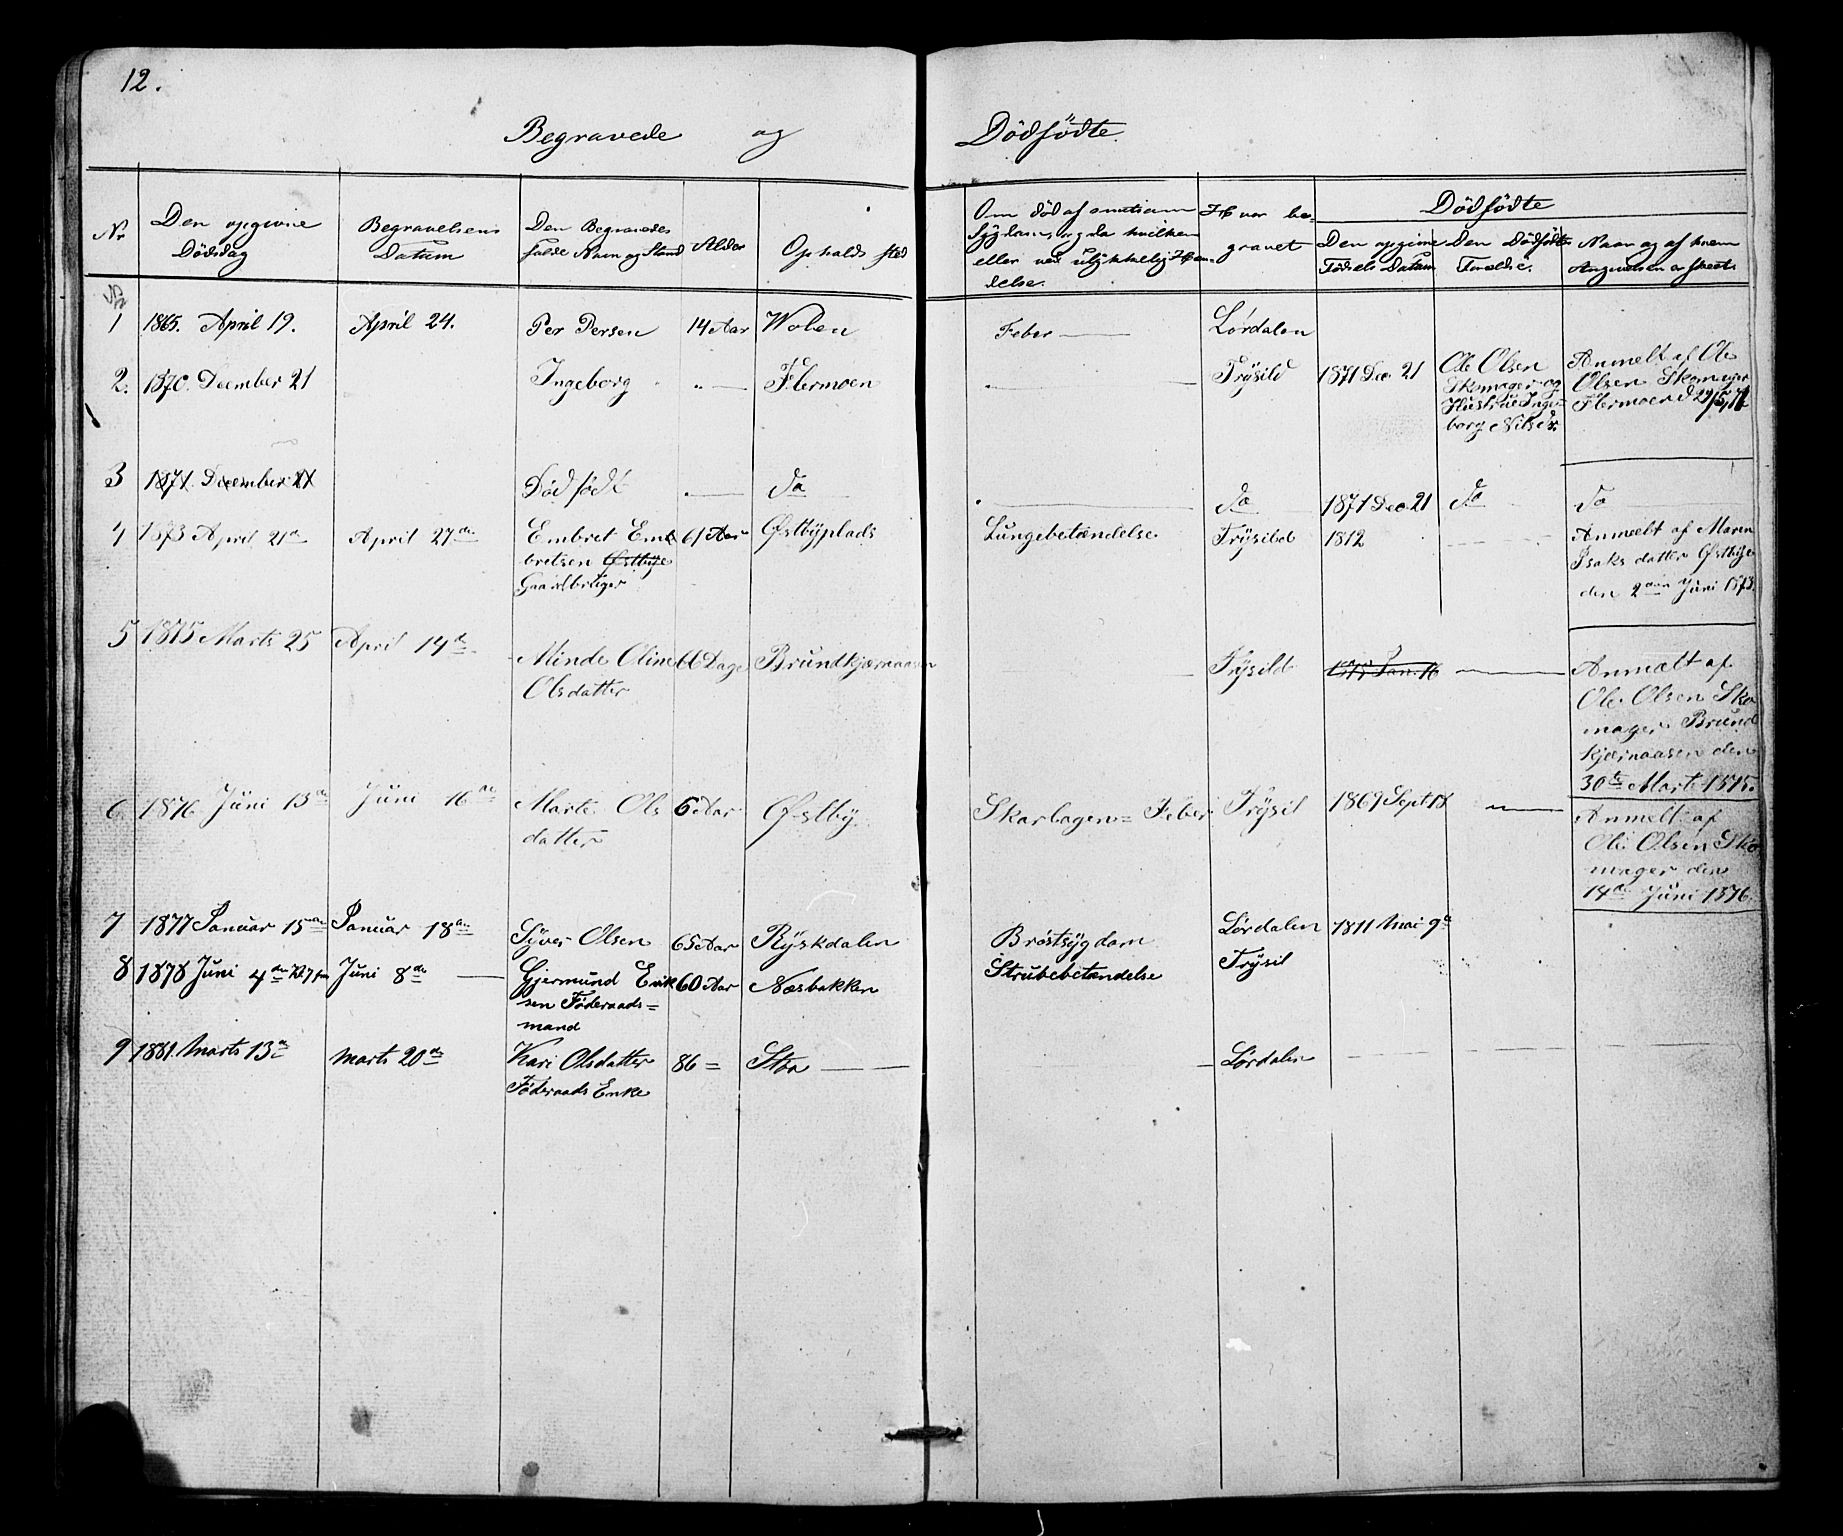 12.
Begravede og Dödfödte.
Nr
Den opgivne
Dödsdag
Begravelsens
Datum
Den Begravedes
fulde Navn og Stand
Alder
Opholds sted
Om död af
Sygdom, og da hvilken
eller ved ulykkelig Hæn-
delse.
Hvor be-
gravet
Dödfödte
Den opgivne
Födsels Datum
Den Dödfödte
Navn og af hvem
Angivelsen er skeet.
1 1865. April 19. April 24. Per Persen 14 Aar Wolen Feber Lørdalen
2. 1870. December 21 Ingeborg " Flermoen Trÿsild 1871 Dec 21 Ole Olsen
Skomager og
Hustrue Inge-
borg Nilsd.
Anmelt af Ole
Olsen Skomager
Flermoen d
3 1871. December 21 Död född do do 1871 Dec. 21 do do
4 1873 April 21de April 27de Embret Em-
bretsen Østbÿe
Gaardbruger
61 Aar Østbÿplads Lungebetændelse Trÿsild 1812
Anmælt af Maren
Isaks datter Østbÿe
den 2den Juni 1873.
5 1875 Marts 25 April 14de Minde Oline
Olsdatter
66 Dage Brundkjærnaasen Trÿsild 1875 Jan. 16
Anmælt af
Ole Olsen Sko
mager Brund
kjærnaasen den
30te Marts 1875.
6 1876 Jüni 13de Juni 16de Marte Ols
datter
6 Aar Østbÿ Skarlagen= Feber Trÿsil 1869 Sept 17
Anmelt af
Ole Olsen Sko
mager den
14de Juni 1876.
7 1877 Januar 15de Januar 18de Sÿver Olsen 65 Aar Rÿskdalen Bröstsÿgdom Lørdalen 1811 Mai 9de
8 1878 Juni 4de Juni 8de Gjermund Erik
sen Föderaads=
mand
60 Aar Næsbakken Strubebetændelse Trÿsil
9 1881. Marts 13de Marts 20de Kari Olsdatter
Föderaads Enke
86 = Støa Lørdalen